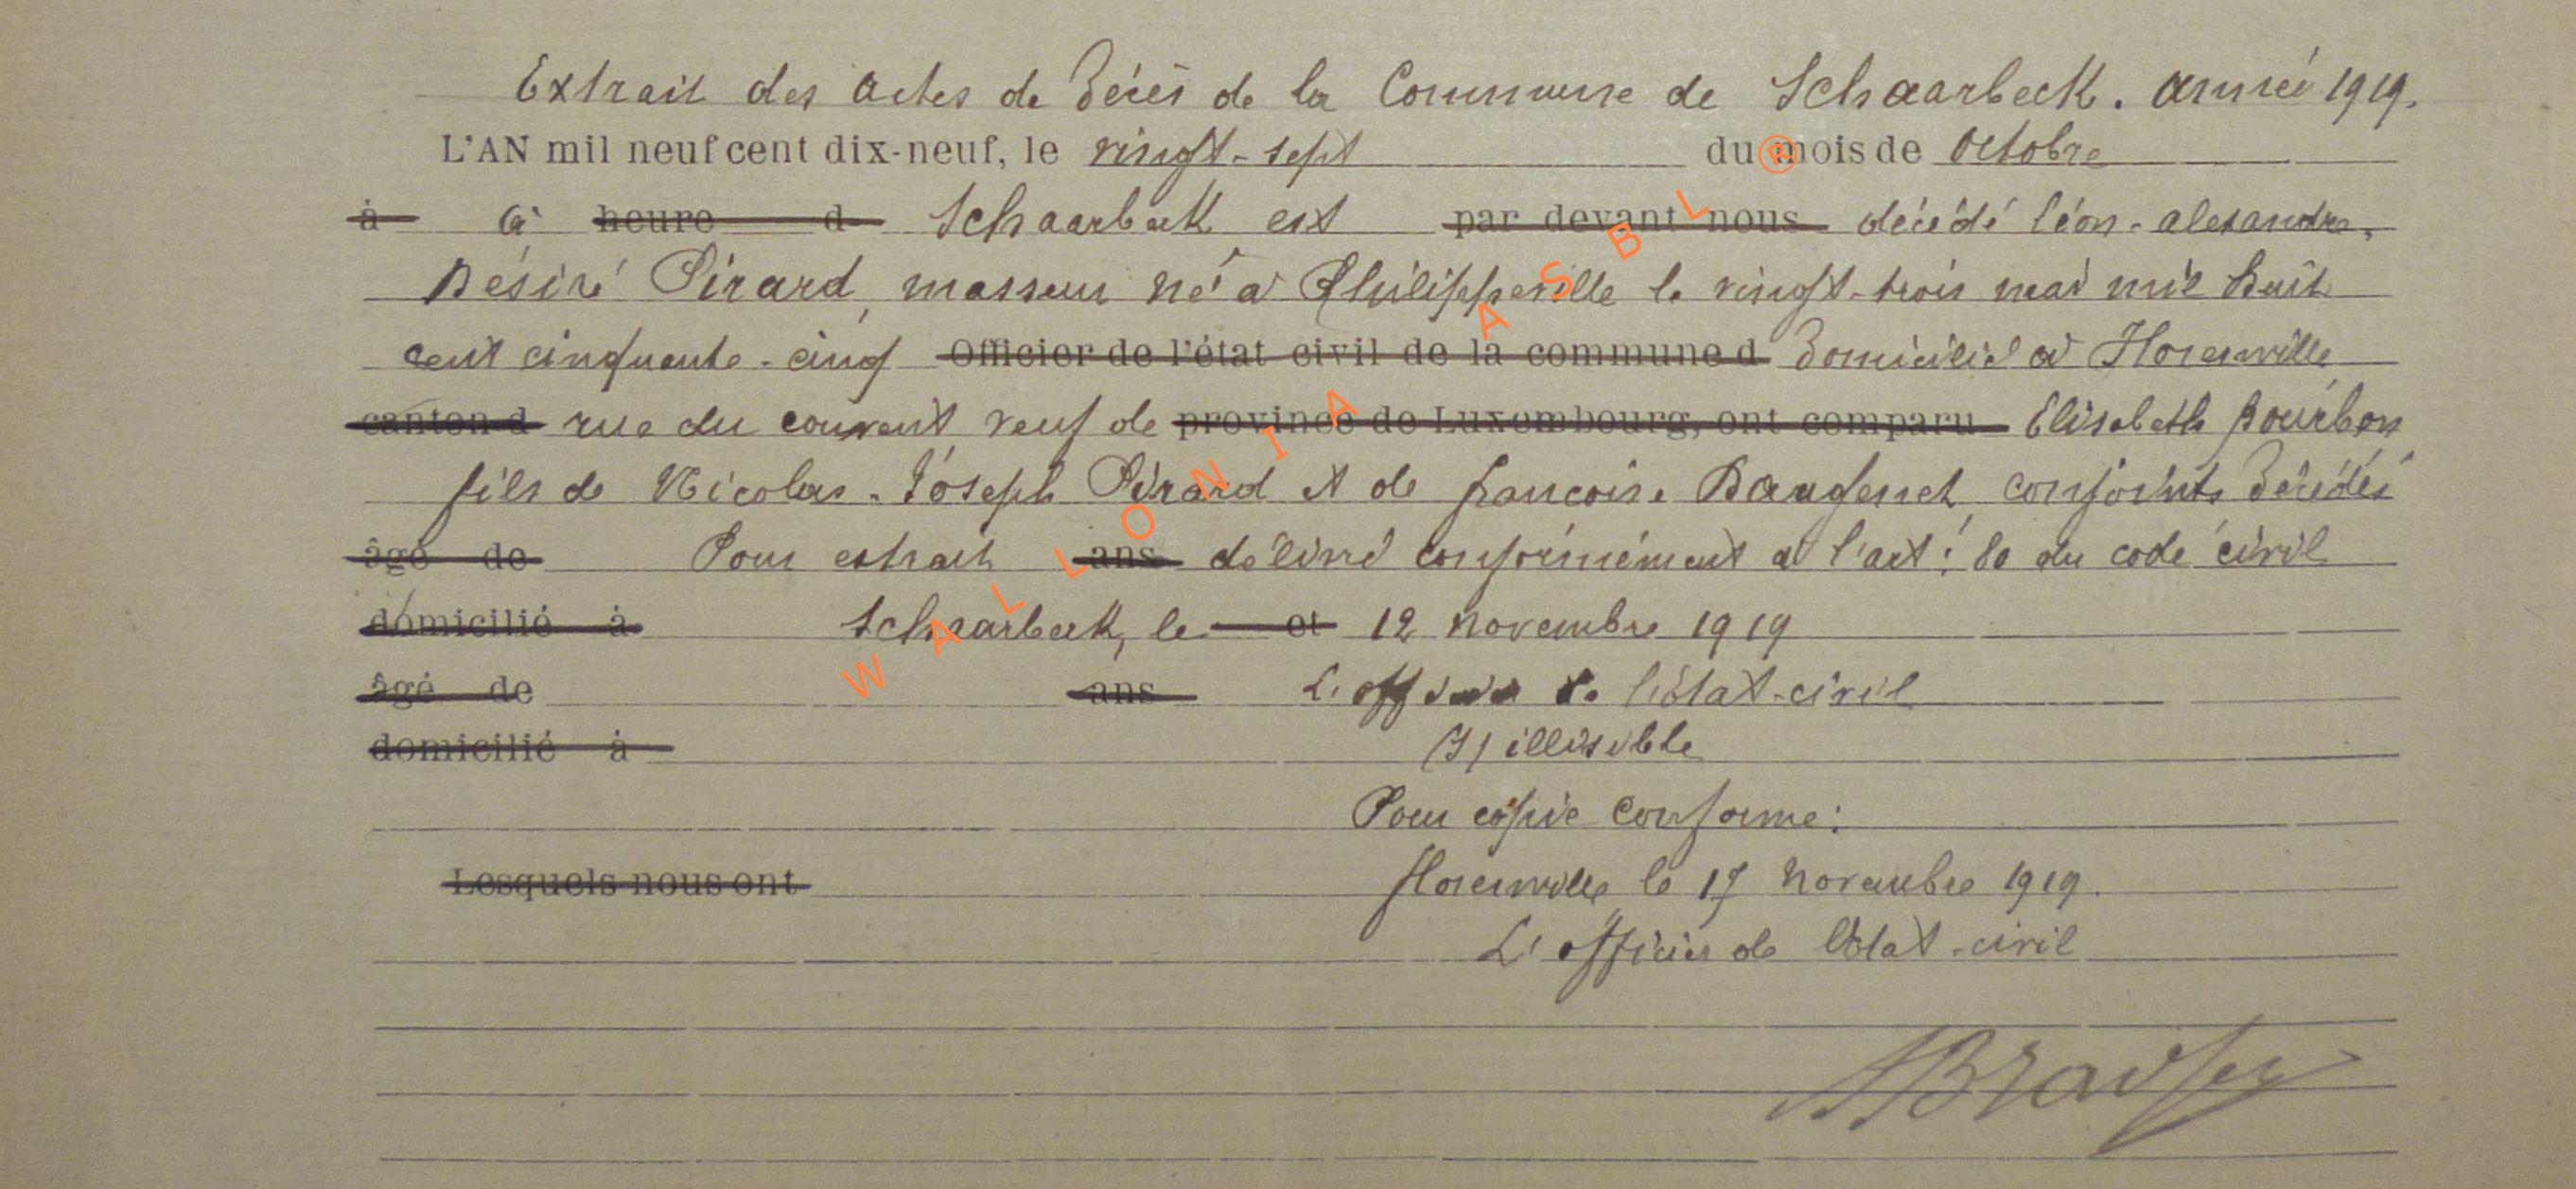 Extrait des Actes de Décès de la Commune de Schaarbeck. Année 1919.
L'AN mil neuf cent dix-neuf, le vingt-sept du mois de Octobre
à à heure d Schaarbeek est par devant nous décédé Léon-Alexandre,
Désiré Pirard, masseur né à Philippeville le vingt-trois mai mil huit
cent cinquante-cinq Officier de l'état civil de la commune d Domicilié à Florenville
canton d rue du couvent veuf de province de Luxembourg, ont comparu Elisabeth Bourbon
fils de Nicolas-Joseph Pirard et de Francoise conjoints Décédés
âgé de Pour extrait ans délivré conformément à l'art: 80 du code civil
domicilié à Schaarbeek, le et 12 novembre 1919
âgé de ans L'officier de l'état-civil
domicilié à (S) illisible
Pour copie conforme:
Lesquels nous ont Florenville le 17 novembre 1919.
L'officier de l'état-civil
WALLONIA ASBL ®